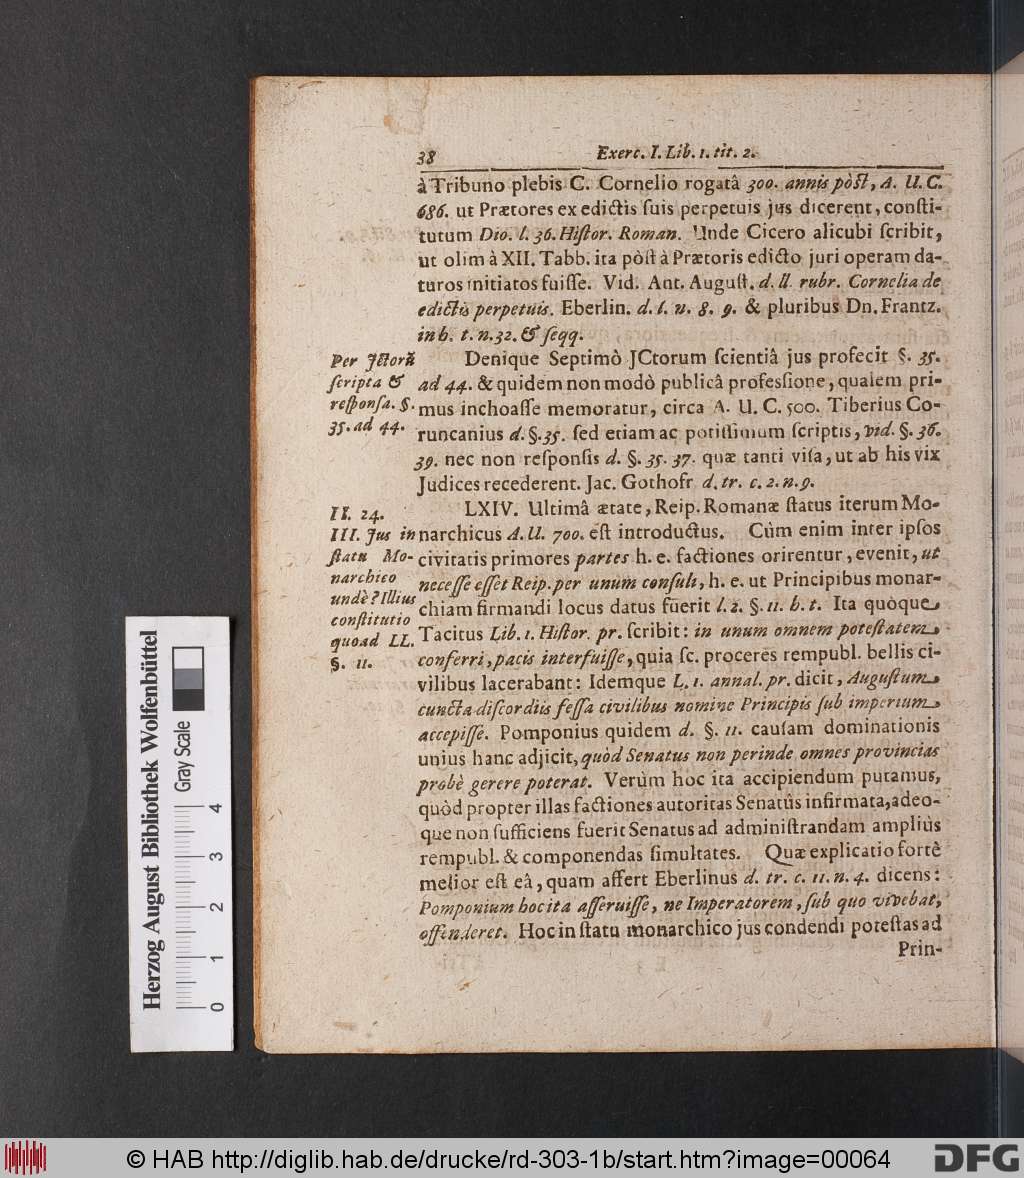 38 Exerc. I. Lib. 1. tit. 2.
à Tribuno plebis C. Cornelio rogatâ 300. annis pòſt, A. U. C.
686. ut Prætores ex edictis ſuis perpetuis jus dicerent, conſti-
tutum Dio. l. 36. Hiſtor. Roman. Unde Cicero alicubi ſcribit,
ut olim à XII. Tabb. ita pòſt à Prætoris edicto juri operam da-
turos initiatos fuiſſe. Vid. Ant. Auguſt. d. ll. rubr. Cornelia de
edictis perpetuis. Eberlin. d. l. n. 8. 9. & pluribus Dn. Frantz.
in h. t. n. 32. & ſeqq.
Per JCtorū
ſcripta &
reſponſa. §.
35. ad 44.
Denique Septimò JCtorum ſcientiâ jus profecit §. 35.
ad 44. & quidem non modò publicâ profeſſione, qualem pri-
mus inchoaſſe memoratur, circa A. U. C. 500. Tiberius Co-
runcanius d. §. 35. ſed etiam ac potiſſimum ſcriptis, vid. §. 36.
39. nec non reſponſis d. §. 35. 37. quæ tanti viſa, ut ab his vix
Judices recederent. Jac. Gothofr d. tr. c. 2. n. 9.
II. 24.
III. Jus in
ſtatu Mo-
narchico
undè? Illius
conſtitutio
quoad LL.
§. 11.
LXIV. Ultimâ ætate, Reip. Romanæ ſtatus iterum Mo-
narchicus A. U. 700. eſt introductus. Cùm enim inter ipſos
civitatis primores partes h. e. factiones orirentur, evenit, ut
neceſſe eſſet Reip. per unum conſuli, h. e. ut Principibus monar-
chiam firmandi locus datus fuerit l. 2. §. 11. h. t. Ita quòque
Tacitus Lib. 1. Hiſtor. pr. ſcribit: in unum omnem poteſtatem
conferri, pacis interfuiſſe, quia ſc. proceres rempubl. bellis ci-
vilibus lacerabant: Idemque L. 1. annal. pr. dicit, Auguſtum
cuncta diſcordiis feſſa civilibus nomine Principis ſub imperium
accepiſſe. Pomponius quidem d. §. 11. cauſam dominationis
unius hanc adjicit, quòd Senatus non perinde omnes provincias
probè gerere poterat. Verùm hoc ita accipiendum putamus,
quòd propter illas factiones autoritas Senatûs infirmata, adeo-
que non ſufficiens fuerit Senatus ad adminiſtrandam ampliùs
rempubl. & componendas ſimultates. Quæ explicatio fortè
melior eſt eâ, quam affert Eberlinus d. tr. c. 11. n. 4. dicens:
Pomponium hoc ita aſſeruiſſe, ne Imperatorem, ſub quo vivebat,
offenderet. Hoc in ſtatu monarchico jus condendi poteſtas ad
Prin-
Herzog August Bibliothek Wolfenbüttel
Gray Scale
0 1 2 3 4
© HAB http://diglib.hab.de/drucke/rd-303-1b/start.htm?image=00064
DFG